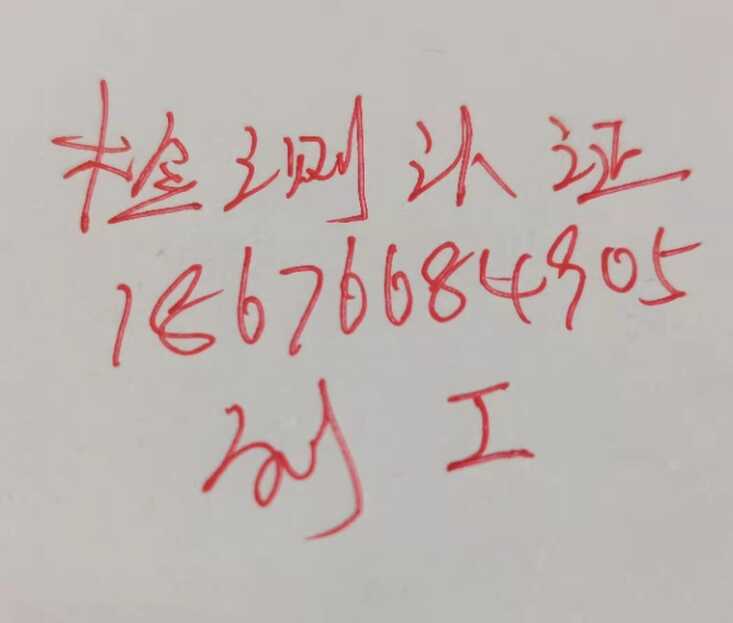 检测认证
18676684905
刘工